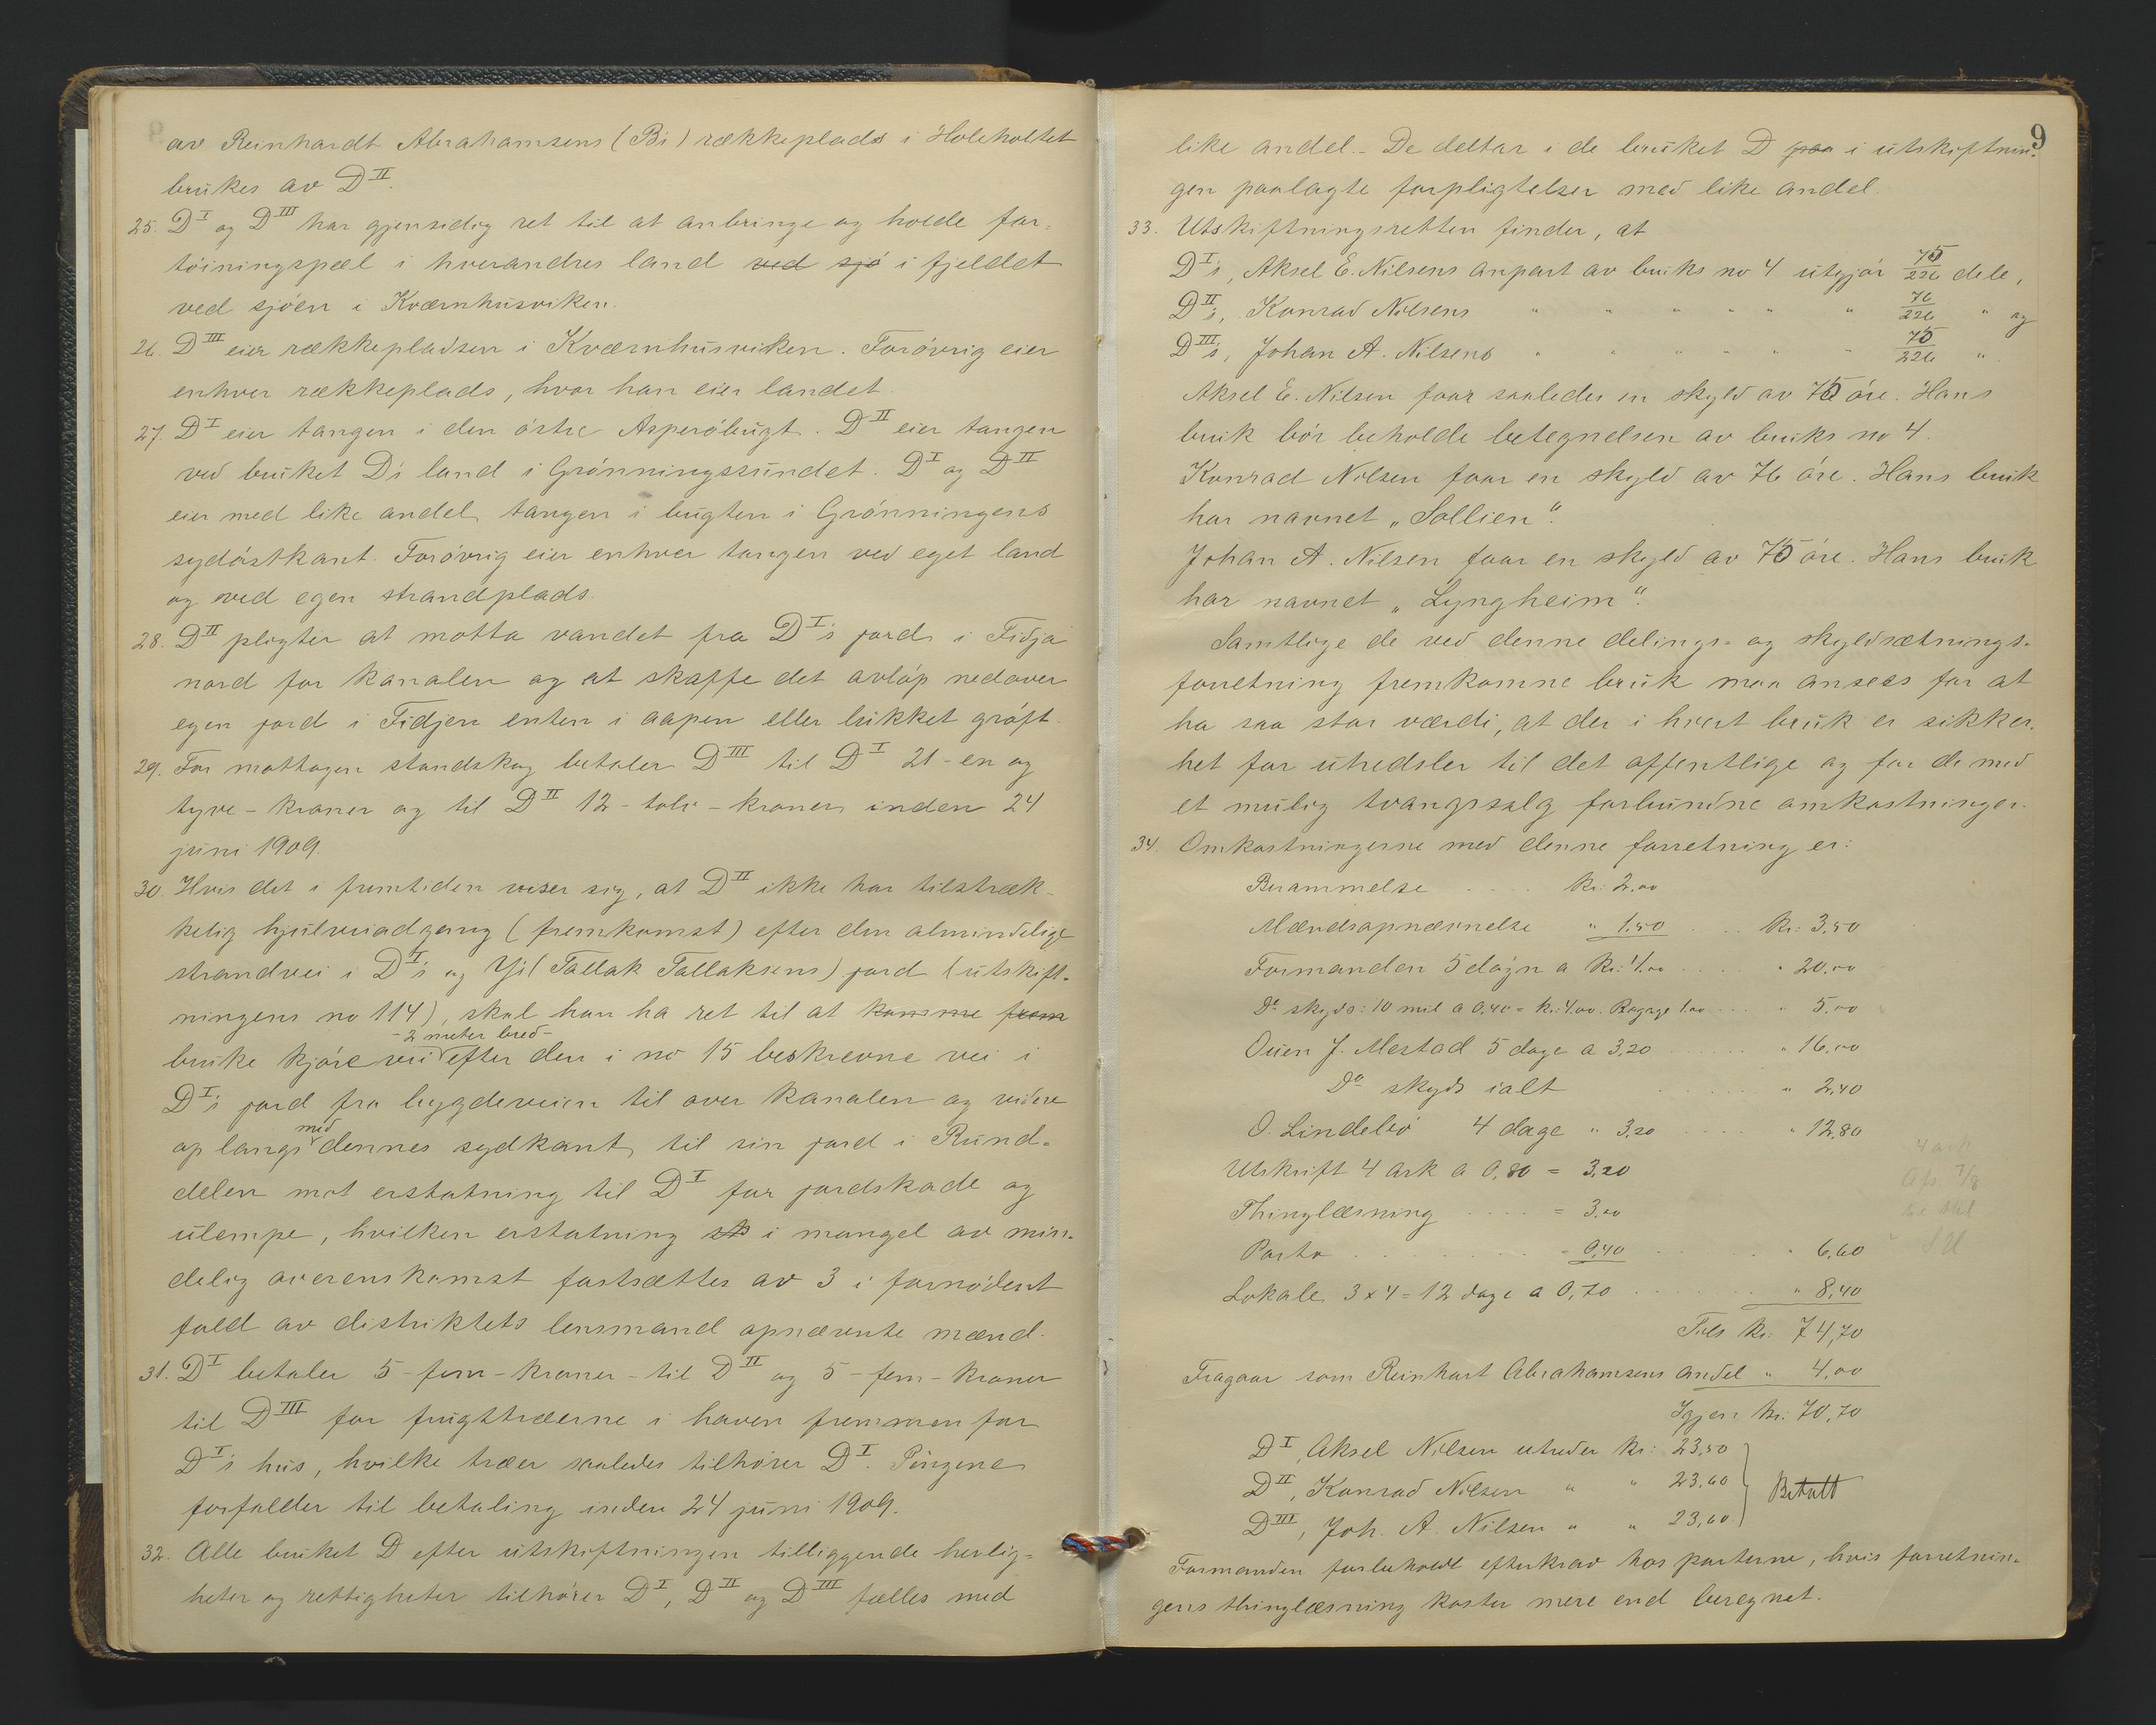 av Reinhardt Abrahamsens (Bi) rækkeplads i Holeholtet
brukes av D II.
25. D I og D III har gjensidig ret til at anbringe og holde for-
tøiningspæl i hverandres land ved sjø i fjeldet
ved sjøen i Kværnhusviken.
26. D III eier rækkepladsen i Kværnhusviken. Forøvrig eier
enhver rækkeplads, hvor han eier landet.
27. D I eier tangen i den østre Asperøbugt. D II eier tangen
ved bruket D's land i Grønningssundet. D I og D II
eier med like andel tangen i bugten i Grønningens
sydøstkant. Forøvrig eier enhver tangen ved eget land
og ved egen strandplads.
28. D II pligter at motta vandet fra D I's jord i Fidja
nord for kanalen og at skaffe det avløp nedover
egen jord i Fidjen enten i aapen eller lukket grøft.
29. For mottagen standskog betaler D III til D I 21 - en og
tyve - kroner og til D II 12 - tolv - kroner inden 24
juni 1909.
30. Hvis det i fremtiden viser sig, at D II ikke har tilstræk-
kelig hjulveiadgang (fremkomst) efter den almindelige
strandvei i D I's og Yi (Tallak Tallaksens) jord (utskift-
ningens no 114), skal han ha ret til at komme frem
- 2 meter bred -
bruke kjøre vei efter den i no 15 beskrevne vei i
D I's jord fra bygdeveien til over kanalen og videre
op langs med dennes sydkant til sin jord i Rund-
delen mot erstatning til D I for jordskade og
ulempe, hvilken erstatning i mangel av min-
delig overenskomst fastsættes av 3 i fornødent
fald av distriktets lensmand opnævnte mænd.
31. D I betaler 5 - fem - kroner - til D II og 5 - fem - kroner
til D III for frugttrærne i haven fremmen for
D I's hus, hvilke trær saaledes tilhører D I. Pengene
forfalder til betaling inden 24 juni 1909.
32. Alle bruket D efter utskiftningen tilliggende herlig-
heter og rettigheter tilhører D I, D II og D III fælles med
9
like andel. - De deltar i de bruket D paa i utskiftnin-
gen paalagte forpligtelser med like andel.
33. Utskiftningsretten finder, at
D I's, Aksel E. Nilsens anpart av bruks no 4 utgjør 75/226 dele,
D II's, Konrad Nilsens " " " " " " 76/226 " og
D III's, Johan A. Nilsens " " " " " " 75/226 ".
Aksel E. Nilsen faar saaledes en skyld av 75 øre. Hans
bruk bør beholde betegnelsen av bruks no 4.
Konrad Nilsen faar en skyld av 76 øre. Hans bruk
har navnet „Sollien".
Johan A. Nilsen faar en skyld av 75 øre. Hans bruk
har navnet „Lyngheim".
Samtlige de ved denne delings- og skyldsætnings-
forretning fremkomne bruk maa ansees for at
ha saa stor værdi, at der i hvert bruk er sikker-
het for utredsler til det offentlige og for de med
et mulig tvangssalg forbundne omkostninger.
34. Omkostningerne med denne forretning er:
Berammelse .... kr: 2.00
Mændsopnævnelse " 1.50 .... kr: 3,50
Formanden 5 døgn a kr: 4.00 .... " 20.00
Do skyds: 10 mil a 0,40 = kr: 4.00. Bagage 1.00 ... " 5,00
Ouen J. Mestad 5 dage a 3,20 ...... " 16,00
Do skyds ialt ..... " 2,40
O. Lindebø 4 dage " 3,20 ...... " 12,80
Utskrift 4 ark a 0,80 = 3,20
Thinglæsning .... = 3,00
Porto .......... = 0,40 .... " 6,60
Lokale 3 x 4 = 12 dage a 0,70 ....... " 8,40
Tils kr: 74,70
Fragaar som Reinhart Abrahamsens andel " 4,00
Igjen kr: 70,70
D I, Aksel Nilsen utreder kr: 23,50
D II, Konrad Nilsen " " 23,60
Betalt
D III, Joh. A. Nilsen " " 23,60
Formanden forbeholdt efterkrav hos parterne, hvis forretnin-
gens thinglæsning koster mere end beregnet.
4 ark